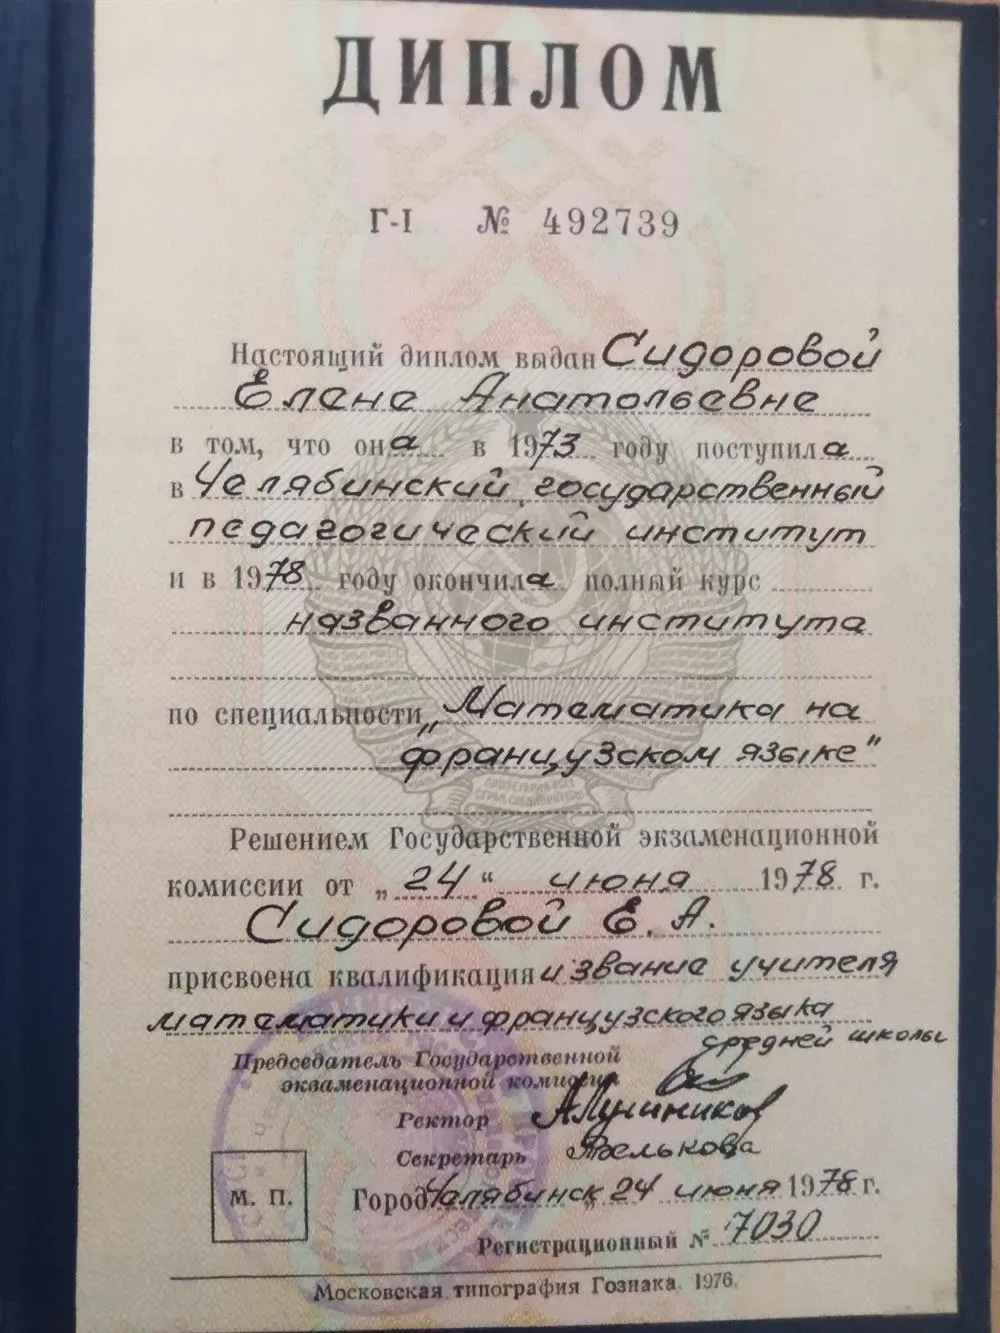 ДИПЛОМ
Г-I № 492739
Настоящий диплом выдан Сидоровой
Елене Анатольевне
в том, что она в 1973 году поступила
в Челябинский государственный
педагогический институт
и в 1978 году окончила полный курс
названного института
по специальности „Математика на
французском языке"
Решением Государственной экзаменационной
комиссии от „24“ июня 1978 г.
Сидоровой Е. А.
присвоена квалификация и звание учителя
математики и французского языка
средней школы
Председатель Государственной
экзаменационной комиссии
Ректор
Секретарь
М. П.
Город Челябинск „24 июня 1978 г.
Регистрационный № 7030
Московская типография Гознака. 1976.